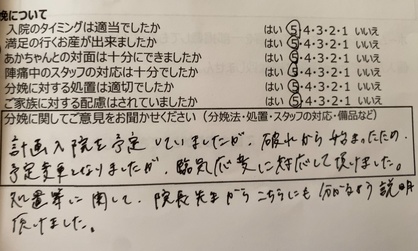 娩について
入院のタイミングは適当でしたか はい 5・4・3・2・1 いいえ
満足の行くお産が出来ましたか はい 5・4・3・2・1 いいえ
あかちゃんとの対面は十分にできましたか はい 5・4・3・2・1 いいえ
陣痛中のスタッフの対応は十分でしたか はい 5・4・3・2・1 いいえ
分娩に対する処置は適切でしたか はい 5・4・3・2・1 いいえ
ご家族に対する配慮はされていましたか はい 5・4・3・2・1 いいえ
分娩に関してご意見をお聞かせください（分娩法・処置・スタッフの対応・備品など）
計画入院を予定していましたが、破水から始まったため
予定変更となりましたが、臨機応変に対応して頂けました。
処置等に関して、院長先生からこちらにも分かるよう説明
頂けました。